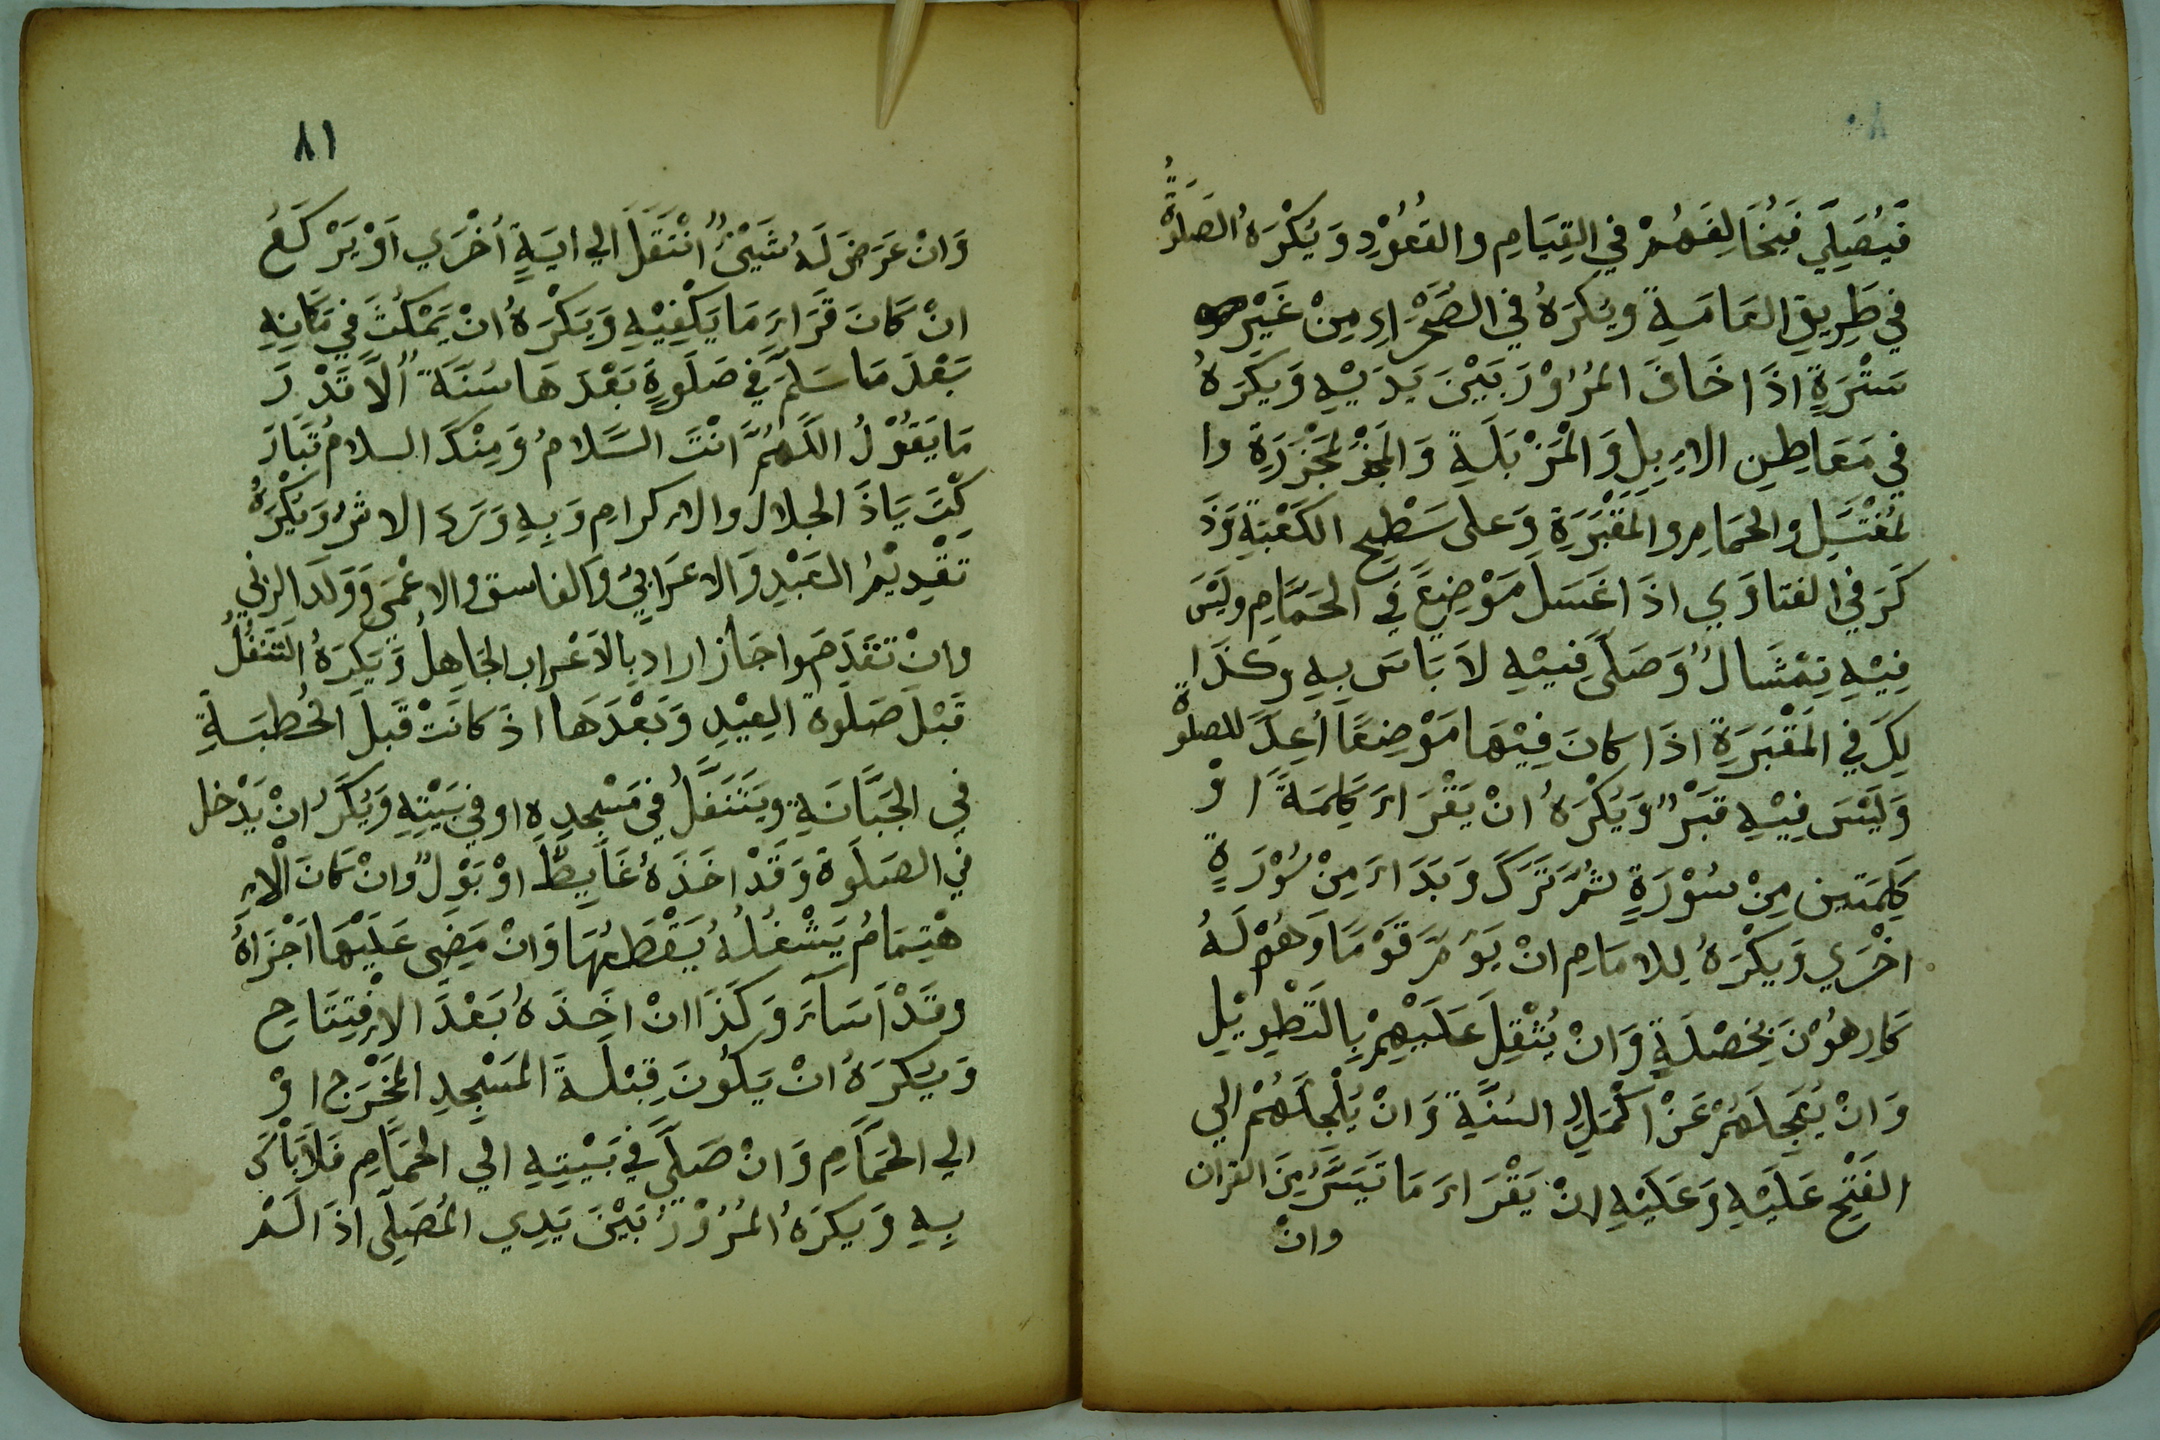 ٨٠
فَيُصَلِّي فَيُخَالِفَهُمْ في القِيَامِ والقُعُوْدِ وَيُكْرَهُ الصَلوةُ
في طَرِيقِ العَامَةِ ويُكرَهُ في الصَّحْرَاءِ مِنْ غَيْرِ
سَتْرَةٍ اذَا خَافَ المرُوْرَ بَيْنَ يَدَيْهِ وَيَكرَهُ
في مَعَاطِنِ الاِبِلِ وَالْمَزْبَلَةِ وَالمَجْزَرَةِ وا
لمُغْتَسَلِ والحَمَامِ والمَقْبَرَةِ وَعلى سَطْحِ الكَعْبَةِ وَذَ
كَرَ في الفتاوَي اذَا غَسَلَ مَوْضِعَ في الحَمَّامِ وليْسَ
فِيْهِ تِمْثَالٌ وَصَلَّى فِيْهِ لاَ بَاسَ بِهِ وكَذَا
لِكَ في المَقْبَرَةِ اذَا كانَ فِيْهَا مَوْضِعًا اُعِدَّ للصلوة
وَلَيْسَ فِيْهِ قَبْرٌ وَيُكْرَهُ انْ يَقْرَاءَ كَلِمَةً اوْ
كَلِمَتين مِنْ سُوْرَةٍ ثُمَّ تَرَكَ وَبَدَاءَ مِنْ سُوْرَةٍ
اخْرَي وَيكْرَهُ لِلامَامِ انْ يَؤمَّ قَوْمَا وَهُمْ لَهُ
كَارِهُوْنَ بِخَصْلَةٍ وَانْ يُثْقِلَ عَلَيْهِمْ بِالتَطْوِيْلِ
وَانْ يُعَجِلَهُمْ عَنْ اكْمَلِ السُنَّةِ وَانْ يُلْجِلَهُمْ الي
الفَتْحِ عَلَيْهِ وَعَلَيْهِ انْ يَقْرَاءَ مَا تَيَسَّرَ مِنَ القران
وانْ
٨١
وَانْ عَرَضَ لَهُ شَيْئٌ انْتَقَلَ الي ايَةٍ اُخْرَي اَوْ يَرْكَعُ
انْ كَانَ قَرَاءَ مَا يَكْفِيْهِ وَيَكْرَهُ انْ يَمْكُثَ في مَكَانِهِ
بَعْدَ مَا سَلَّمَ في صَلَوةٍ بَعْدَهَا سُنَّةٌ الَّا قَدْرَ
مَا يَقُوْلُ اللَهُمَّ انْتَ السَلامُ وَمِنْكَ السلامُ تَبَارَ
كْتَ يَاذَ الجلال والاِكرامِ وَبِهِ وَرَدَ الاثرُ وَيُكْرَهُ
تَقْدِيْمُ العَبْدِ وَالاعْرَابِيِّ والفاسق والاعْمَي وَوَلَدَ الزني
وانْ تَقَدَمَوا جَاز اراد بِالاَعْراب الجَاهِلُ وَيَكرَهُ التَنَفُلُ
قَبْلَ صَلَوة العِيْدِ وَبَعْدَهَا اذَ كانَتْ قَبلَ الخُطبَةِ
في الجَبَّانَةِ وَيَتَنَفَّلُ في مَسْجِدِهِ او في بَيْتِهِ وَيُكرَهُ انْ يَدْخل
في الصَلَوة وَقَدْ اخَذَهُ غَايِطٌ اوْ بَوْلٌ وانْ كانَ الْاِ
هْتِمَامُ يَشْغُلُهُ يَقْطَعُهَا وَانْ مَضَي عَلَيْهَا اجْزَاهُ
وقَدْ اَسَآءَ وَكَذَا انْ اخَذَهُ بَعْدَ الاِفْتِتَاحِ
وَيَكرَهُ انْ يَكُونَ قِبْلَةَ المَسْجِدِ المَخْرَج اوْ
الي الحَمَّامِ وَانْ صَلَّي في بَيْتِهِ الي الحَمَّامِ فَلَا بَاْسَ
بِهِ وَيكرَهُ المُرُوْرُ بَيْنَ يَدِي المُصَلِّي اذَا لَمْ